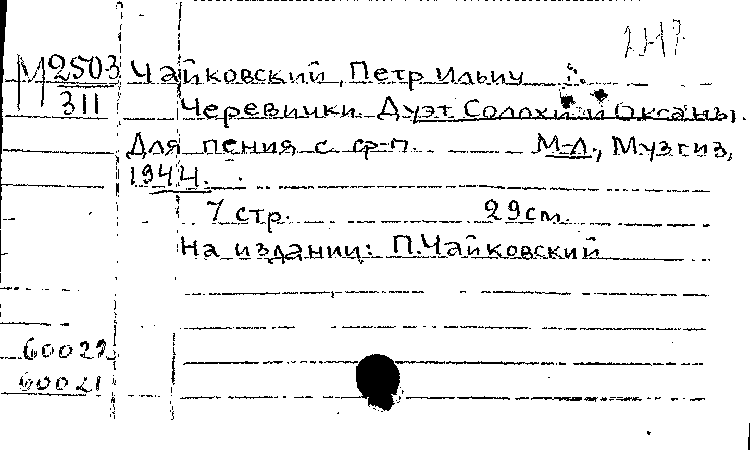 М 2503
311
Чайковский, Петр Ильич
Черевички. Дуэт Солохи и Оксаны.
Для пения с ф-п. М-Л., Музгиз,
1944.
7 стр. 29 см.
На издании: П. Чайковский
60022
60021